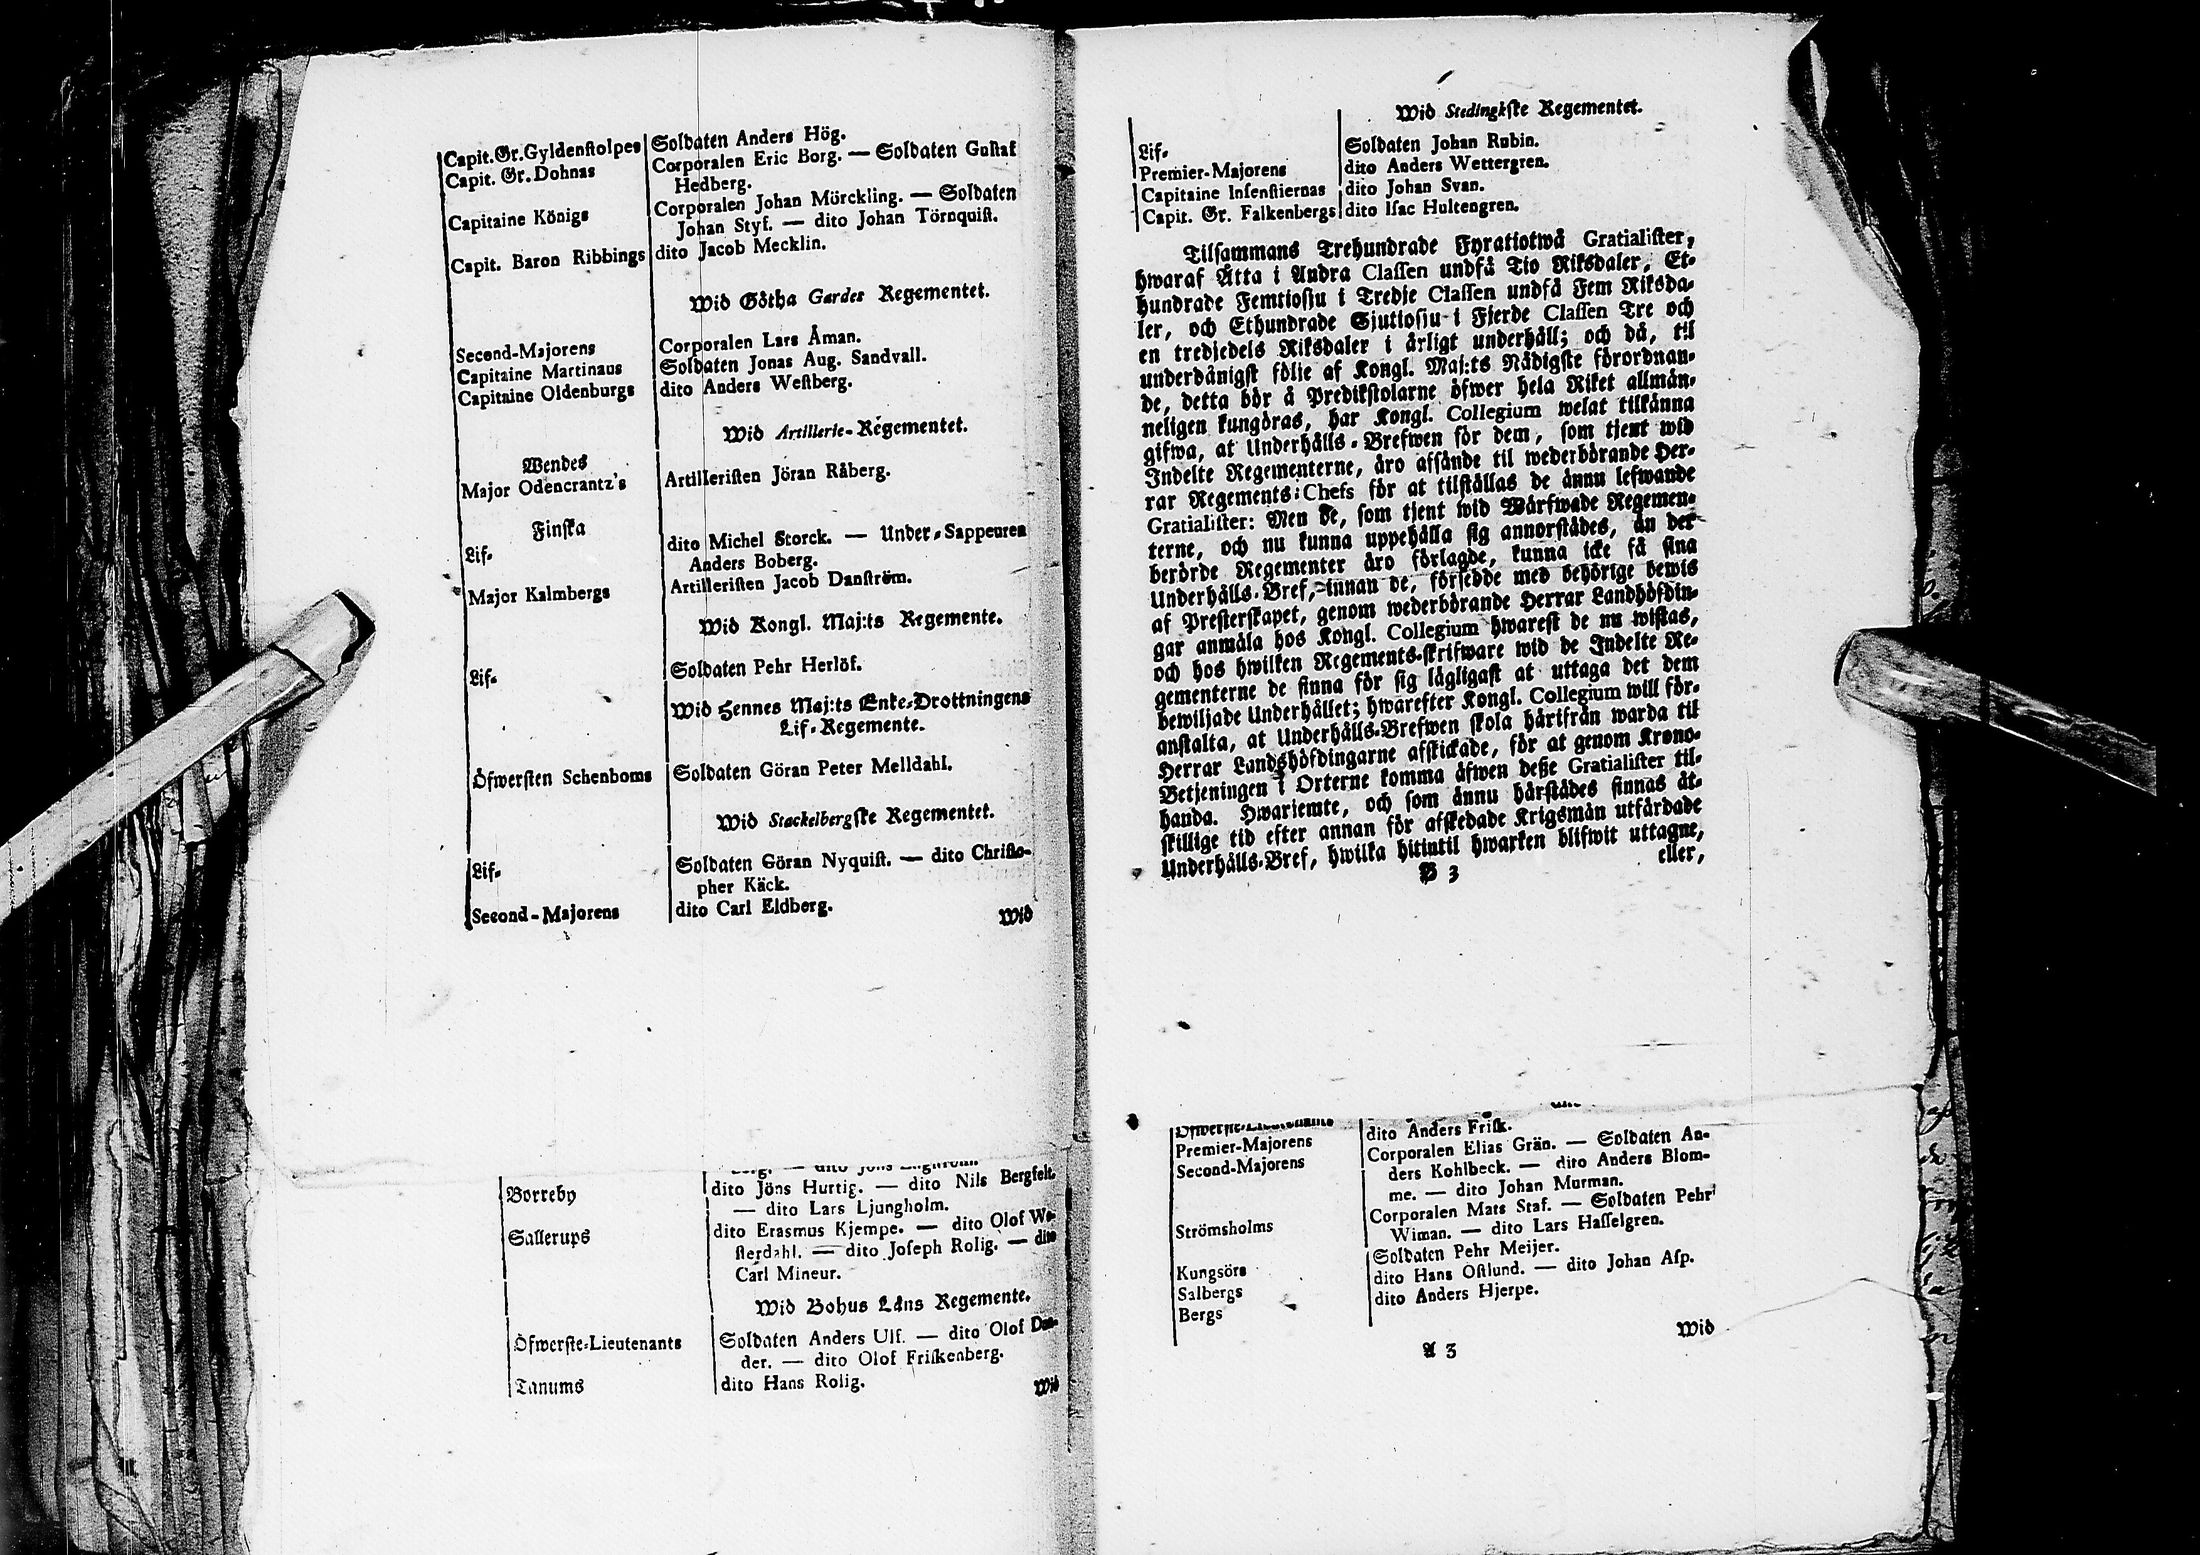 Capit. Gr. Gyldenstolpes Soldaten Anders Hög.
Capit. Gr. Dohnas Corporalen Eric Borg. — Soldaten Gustaf
Hedberg.
Capitaine Königs Corporalen Johan Mörckling. — Soldaten
Johan Styf. — dito Johan Törnquist.
Capit. Baron Ribbings dito Jacob Mecklin.
Wid Götha Gardes Regementet.
Second-Majorens Corporalen Lars Åman.
Capitaine Martinaus Soldaten Jonas Aug. Sandvall.
Capitaine Oldenburgs dito Anders Westberg.
Wid Artillerie-Regementet.
Wendes
Major Odencrantz's Artilleristen Jöran Råberg.
Finska
Lif- dito Michel Storck. — Under-Sappeuren
Anders Boberg.
Major Kalmbergs Artilleristen Jacob Danström.
Wid Kongl. Maj:ts Regemente.
Lif- Soldaten Pehr Herlöf.
Wid Hennes Maj:ts Enke-Drottningens
Lif-Regemente.
Öfwersten Schenboms Soldaten Göran Peter Melldahl.
Wid Stackelbergske Regementet.
Lif- Soldaten Göran Nyquist. — dito Christo-
pher Käck.
Second-Majorens dito Carl Eldberg.
Wid
Borreby dito Jöns Hurtig. — dito Nils Bergfelt.
— dito Lars Ljungholm.
Sallerups dito Erasmus Kjempe. — dito Olof We-
sterdahl. — dito Joseph Rolig. — dito
Carl Mineur.
Wid Bohus Läns Regemente.
Öfwerste-Lieutenants Soldaten Anders Ulf. — dito Olof Dan-
der. — dito Olof Friskenberg.
Tanums dito Hans Rolig.
Wid
Wid Stedingkske Regementet.
Lif- Soldaten Johan Rubin.
Premier-Majorens dito Anders Wettergren.
Capitaine Insenstiernas dito Johan Svan.
Capit. Gr. Falkenbergs dito Isac Hultengren.
Tilsammans Trehundrade Fyratiotwå Gratialister,
hwaraf Åtta i Andra Classen undfå Tio Riksdaler, Et-
hundrade Femtiosju i Tredje Classen undfå Fem Riksda-
ler, och Ethundrade Sjuttiosju i Fjerde Classen Tre och
en tredjedels Riksdaler i årligt underhåll; och då, til
underdånigst följe af Kongl. Maj:ts Nådigste förordnan-
de, detta bör å Predikstolarne öfwer hela Riket allmän-
neligen kungöras, har Kongl. Collegium welat tilkänna
gifwa, at Underhålls-Brefwen för dem, som tjent wid
Indelte Regementerne, äro afsände til wederbörande Her-
rar Regements-Chefs för at tilställas de ännu lefwande
Gratialister: Men de, som tjent wid Wärfwade Regemen-
terne, och nu kunna uppehålla sig annorstädes, än der
berörde Regementer äro förlagde, kunna icke få sina
Underhålls-Bref, innan de, försedde med behörige bewis
af Presterskapet, genom wederbörande Herrar Landshöfdin-
gar anmäla hos Kongl. Collegium hwarest de nu wistas,
och hos hwilken Regements-skrifware wid de Indelte Re-
gementerne de finna för sig lägligast at uttaga det dem
bewiljade Underhållet; hwarefter Kongl. Collegium will för-
anstalta, at Underhålls-Brefwen skola härifrån warda til
Herrar Landshöfdingarne afskickade, för at genom Krono-
Betjeningen i Orterne komma äfwen desse Gratialister til-
handa. Hwarjemte, och som ännu härstädes finnas åt-
skillige tid efter annan för afskedade Krigsmän utfärdade
Underhålls-Bref, hwilka hitintil hwarken blifwit uttagne,
B 3 eller,
Premier-Majorens dito Anders Frisk.
Second-Majorens Corporalen Elias Grän. — Soldaten An-
ders Kohlbeck. — dito Anders Blom-
me. — dito Johan Murman.
Strömsholms Corporalen Mats Staf. — Soldaten Pehr
Wiman. — dito Lars Hasselgren.
Kungsörs Soldaten Pehr Meijer.
Salbergs dito Hans Östlund. — dito Johan Asp.
Bergs dito Anders Hjerpe.
Wid
A 3